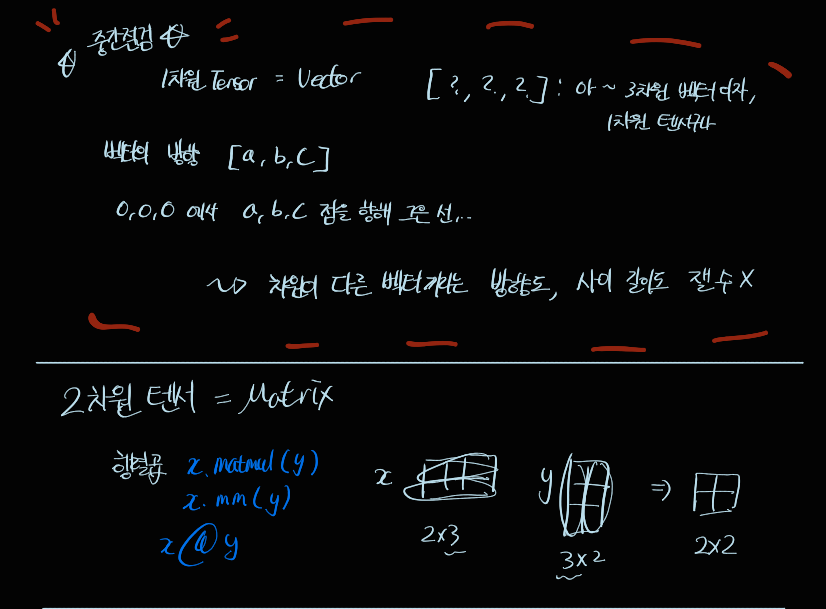 중간점검
1차원 Tensor = Vector [ ?, ?, ? ] : 아 ~ 3차원 벡터이자,
1차원 텐서구나
벡터의 방향 [a, b, c]
0,0,0 에서 a,b,c 점을 향해 그은 선,..
~> 차원이 다른 벡터끼리는 방향도, 사이 길이도 잴 수 X
2차원 텐서 = Matrix
행렬곱 x.matmul(y)
x.mm(y)
x @ y
x y ⇒
2x3 3x2 2x2